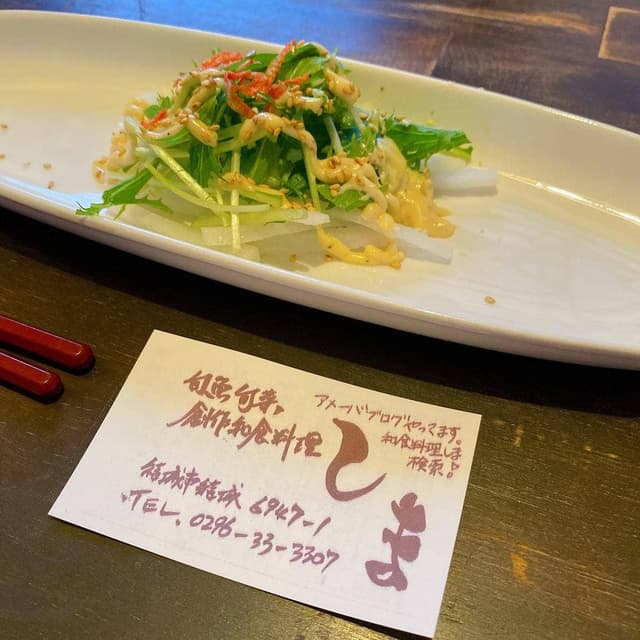 旬画旬菜、
創作和食料理
し
ま
アメーバブログやってます。
和食料理しま
検索!
結城市結城 6947-1
TEL. 0296-33-3307